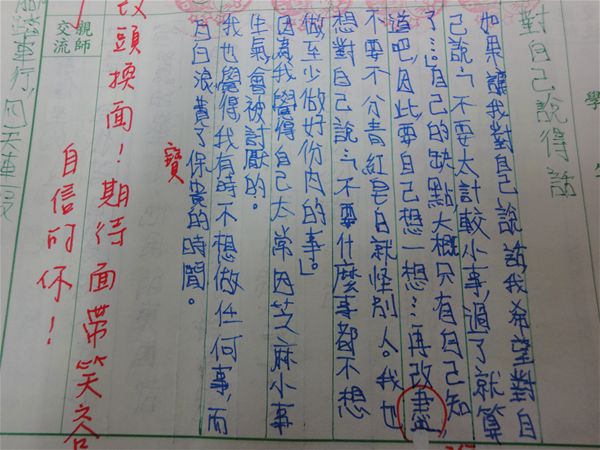 對自己說得話
如果讓我對自己說話我希望對自
己說：「不要太計較小事，過了就算
了…。」自己的缺點大概只有自己知
道吧，因此要自己想一想…再改
不要不分青紅皂白就怪別人。我也
想對自己說：「不要什麼事都不想
做至少做好份內的事」。
因為我覺得自己太常因芝麻小事
生氣，會被討厭的。
我也覺得我有時不想做任何事，而
白白浪費了保貴的時間。
寶
親師交流
改頭換面！期待面帶笑容
自信的你！